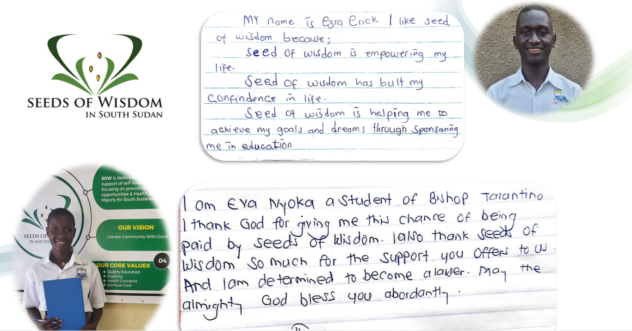 SEEDS OF WISDOM
IN SOUTH SUDAN
MY name is Ezra Erick I like seed
of wisdom because;
seed of wisdom is empowering my
life.
seed of wisdom has built my
confindence in life.
seed of wisdom is helping me to
achieve my goals and dreams through sponsoring
me in education
SEEDS OF WISDOM
OUR VISION
Literate Community With
OUR CORE VALUES
Quality Education
Spiritual Care
04
I am Eva Nyoka a student of Bishop Tarantino
I thank God for giving me this chance of being
paid by seeds of Wisdom. I also thank seeds of
Wisdom so much for the support you offers to us.
And I am determined to become a lawer. May the
almighty God bless you abordantly.